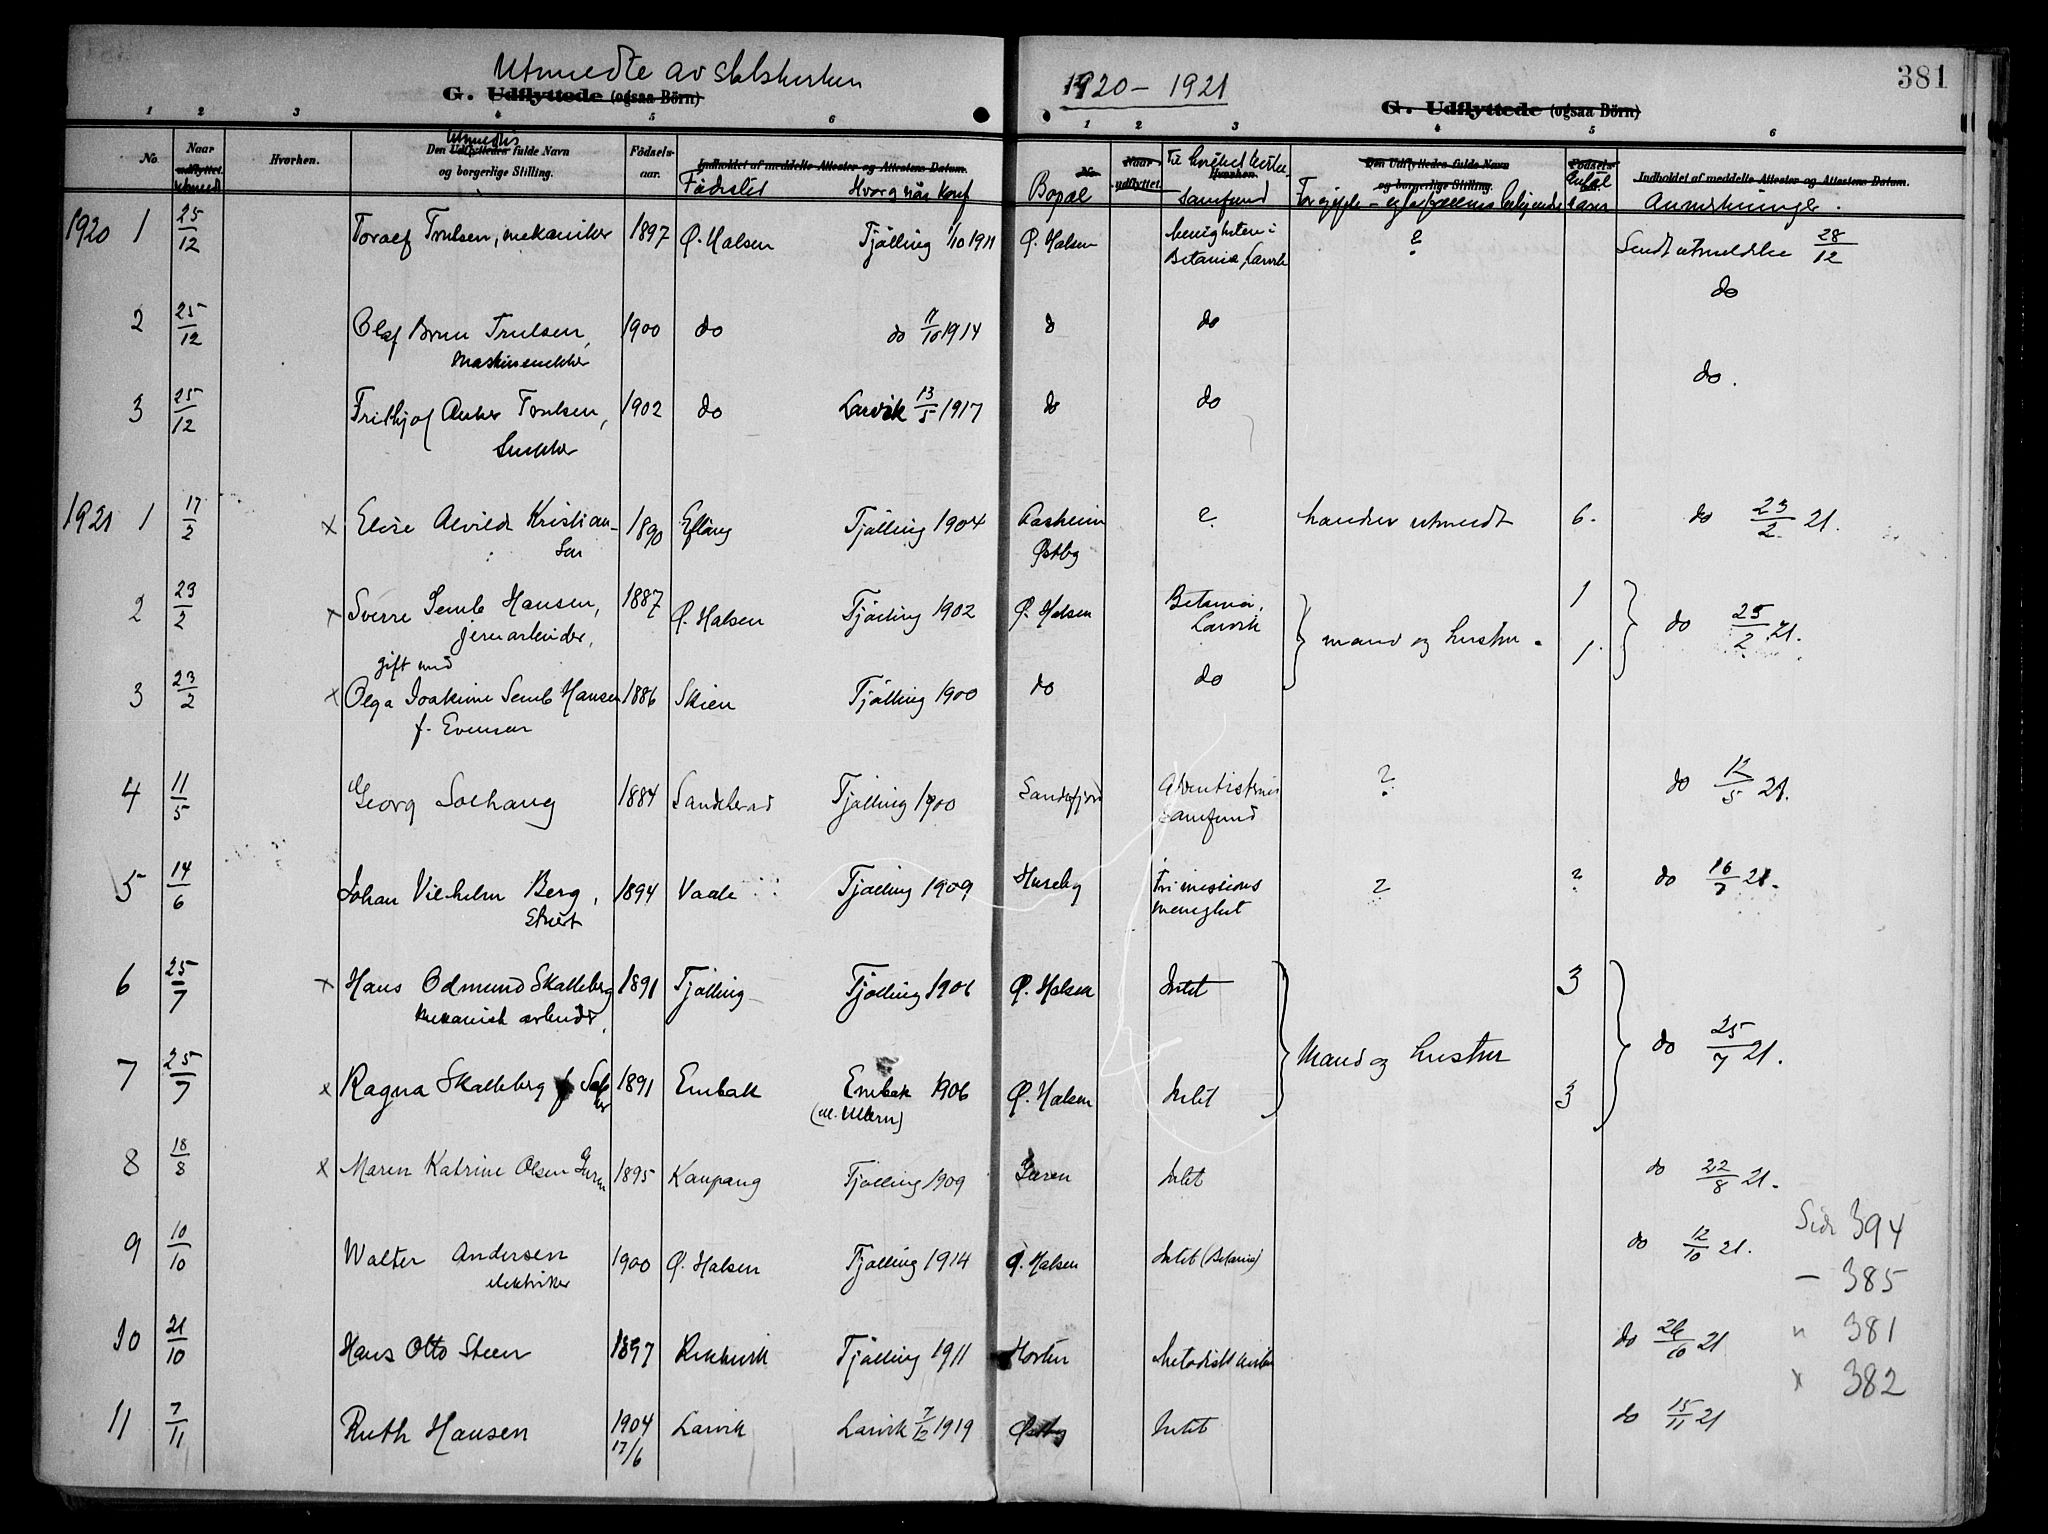 Utmeldte av statskirken
1920 – 1921
381
G. Udflyttede (ogsaa Börn)
G. Udflyttede (ogsaa Börn)
1 2 3 4 5 6
1 2 3 4 5 6
No. Naar udflyttet utmeldt Hvorhen. Den Udflyttedes utmeldtes fulde Navn og borgerlige Stilling. Födselsaar. Indholdet af meddelte Attester og Attestens Datum. Fødested Hvor og når konf
No. Bopæl Naar udflyttet. Hvorhen. Til hvilket samfund Den Udflyttedes fulde Navn og borgerlige Stilling. Födselsaar. Antal Indholdet af meddelte Attester og Attestens Datum. Anmerkninger.
1920 1 25/12 Toralf Trulsen, mekaniker 1897 Ø. Halsen Tjølling 1/10 1911 Ø. Halsen menigheten i Betania, Larvik ? Sendt utmeldelse 28/12
2 25/12 Olaf Brun Trulsen, 1900 do do 1914 do do do
3 25/12 Frithjof Anker Trulsen, Snekker 1902 do Larvik 13/5 1917 do do do.
1921 1 17/2 x Elise Alvilde Kristiansen 1890 Eftang Tjølling 1904 Aasheim Østby ? utmeldt 6. do 23/2 21.
2 23/2 x Sverre Semb Hansen, jernarbeider, 1887 Ø. Halsen Tjølling 1902 Ø. Halsen Betania, Larvik mand og hustru. 1 do 25/2 21.
gift med
3 23/2 x Olga Joakime Semb Hansen f. Evensen 1886 Skien Tjølling 1900 do do 1
4 11/5 Georg Solhaug 1884 Sandeherred Tjølling 1900 Sandefjord Adventisternes samfund ? do 12/5 21.
5 14/6 Johan Vilhelm Berg, 1894 Vaale Tjølling 1909 Huseby Frimissions menighet ? ? do 16/7 21.
6 25/7 x Hans Odmund Skalleberg mekanisk arbeider, 1891 Tjølling Tjølling 1906 Ø. Halsen Intet Mand og hustru 3 do 25/7 21.
7 25/7 x Ragna Skalleberg f. 1891 Enebak Enebak 1906 Ø. Halsen Intet 3
8 18/8 x Maren Katrine Olsen Guren 1895 Kaupang Tjølling 1909 Guren Intet do 22/8 21.
9 10/10 Walter Andersen elektriker 1900 Ø. Halsen Tjølling 1914 Ø. Halsen Intet (Betania) do 12/10 21.
Side 394
– 385
10 21/10 Hans Otto Steen 1897 Rekkevik Tjølling 1911 Horten Metodistkirken do 26/10 21
" 381
x 382
11 7/11 Ruth Hansen 1904 17/6 Larvik Larvik 7/12 1919 Østby Intet do 15/11 21